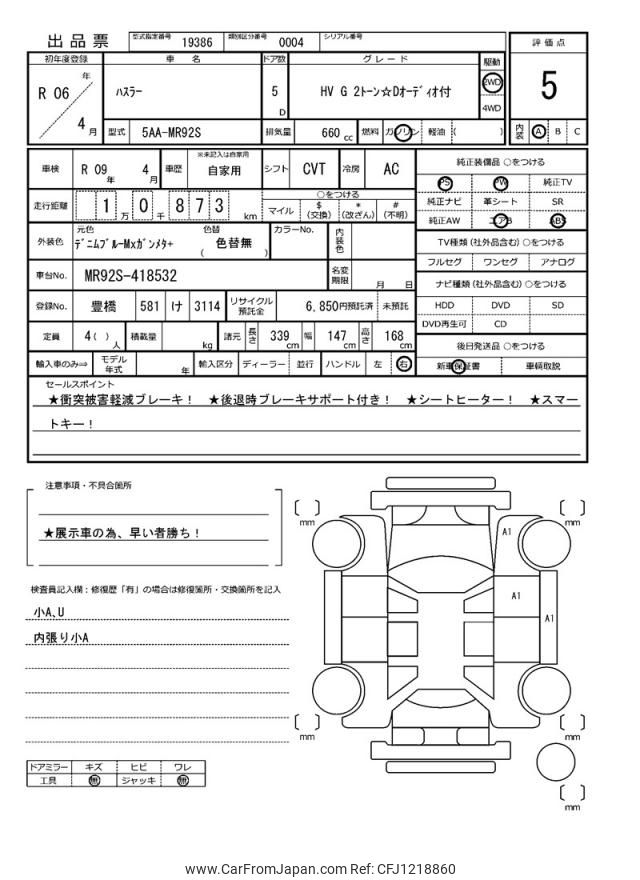 出品票
型式指定番号 19386 類別区分番号 0004 シリアル番号
初年度登録 車 名 ドア数 グレード 駆動
評価点
R 06 年 4 月
ハスラー
5 D
HV G 2トーン☆Dオーディオ付
2WD
4WD
5
型式 5AA-MR92S 排気量 660 cc 燃料 ガソリン 軽油 ( )
内装 A B C
車検 R 09 年 4 月 車歴 ※未記入は自家用 自家用 シフト CVT 冷房 AC
走行距離 1 万 0 千 8 7 3 km
○をつける
マイル $ (交換) * (改ざん) # (不明)
純正装備品 ○をつける
PS PW 純正TV
純正ナビ 革シート SR
純正AW エアB ABS
外装色 元色 デニムブルーMxガンメタ+ 色替 ( 色替無 ) カラーNo. 内装色
TV種類 (社外品含む) ○をつける
フルセグ ワンセグ アナログ
車台No. MR92S-418532 名変期限 月 日
ナビ種類 (社外品含む) ○をつける
HDD DVD SD
DVD再生可 CD
登録No. 豊橋 581 け 3114 リサイクル預託金 6,850円預託済 未預託
定員 4( ) 人 積載量 kg 諸元 長さ 339 cm 幅 147 cm 高さ 168 cm
後日発送品 ○をつける
新車保証書 車輌取説
輸入車のみ⇒ モデル年式 年 輸入区分 ディーラー 並行 ハンドル 左 右
セールスポイント
★衝突被害軽減ブレーキ! ★後退時ブレーキサポート付き! ★シートヒーター! ★スマー
トキー!
注意事項・不具合箇所
★展示車の為、早い者勝ち!
検査員記入欄:修復歴「有」の場合は修復箇所・交換箇所を記入
小A､U
内張り小A
ドアミラー キズ ヒビ ワレ
工具 無 ジャッキ 無
mm
mm
A1
A1
A1
mm
mm
mm
www.CarFromJapan.com Ref: CFJ1218860